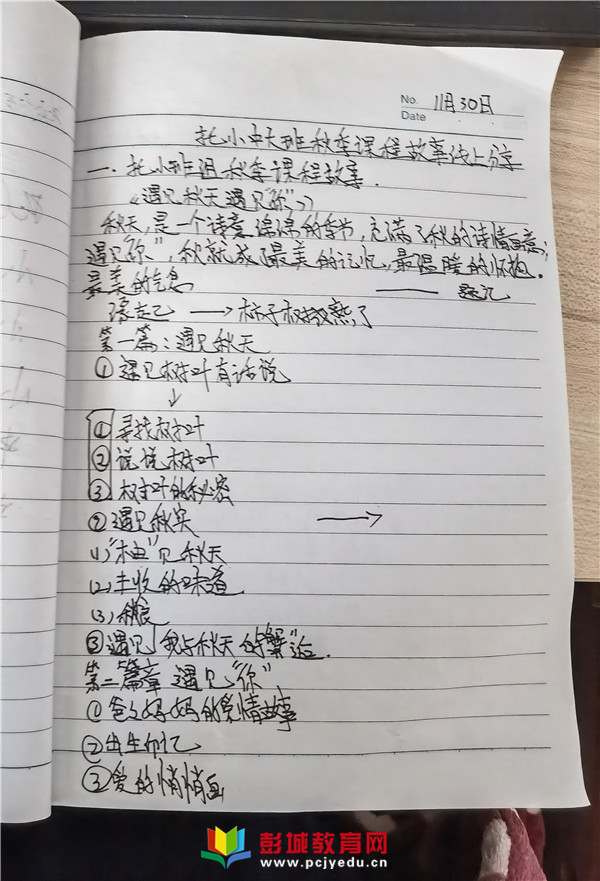 No. 11月30日
Date
托小中大班秋季课程故事线上分享
一.托小班组秋季课程故事.
《遇见秋天遇见"你"》
秋天,是一个诗意绵绵的季节,充满了秋的诗情画意;
遇见"你",秋就成了最美的记忆,最温暖的怀抱.
最美的信息 —— 题记
缘起 → 柿子树熟了
第一篇:遇见秋天
①遇见树叶有话说
↓
①寻找树叶
②说说树叶
③树叶的秘密
②遇见秋实 →
(1)"柚"见秋天
(2)丰收的味道
(3)秋食
③遇见 我与秋天的"蟹"逅.
第二篇章 遇见"你"
①爸爸妈妈的爱情故事
②出生印忆
③爱的悄悄画
彭城教育网
www.pcjyedu.cn